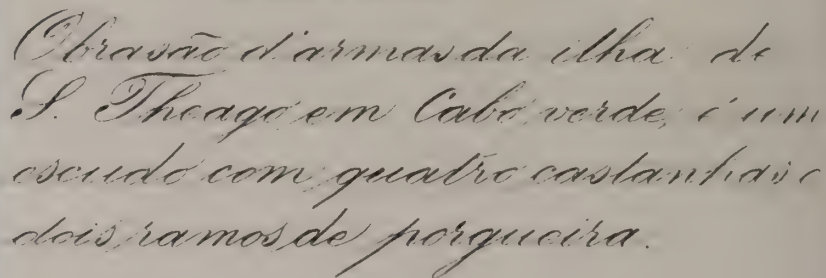 O brasão d'armas da ilha de
S. Thiago em Cabo verde, é um
escudo com quatro castanhas e
dois ramos de porgueira.